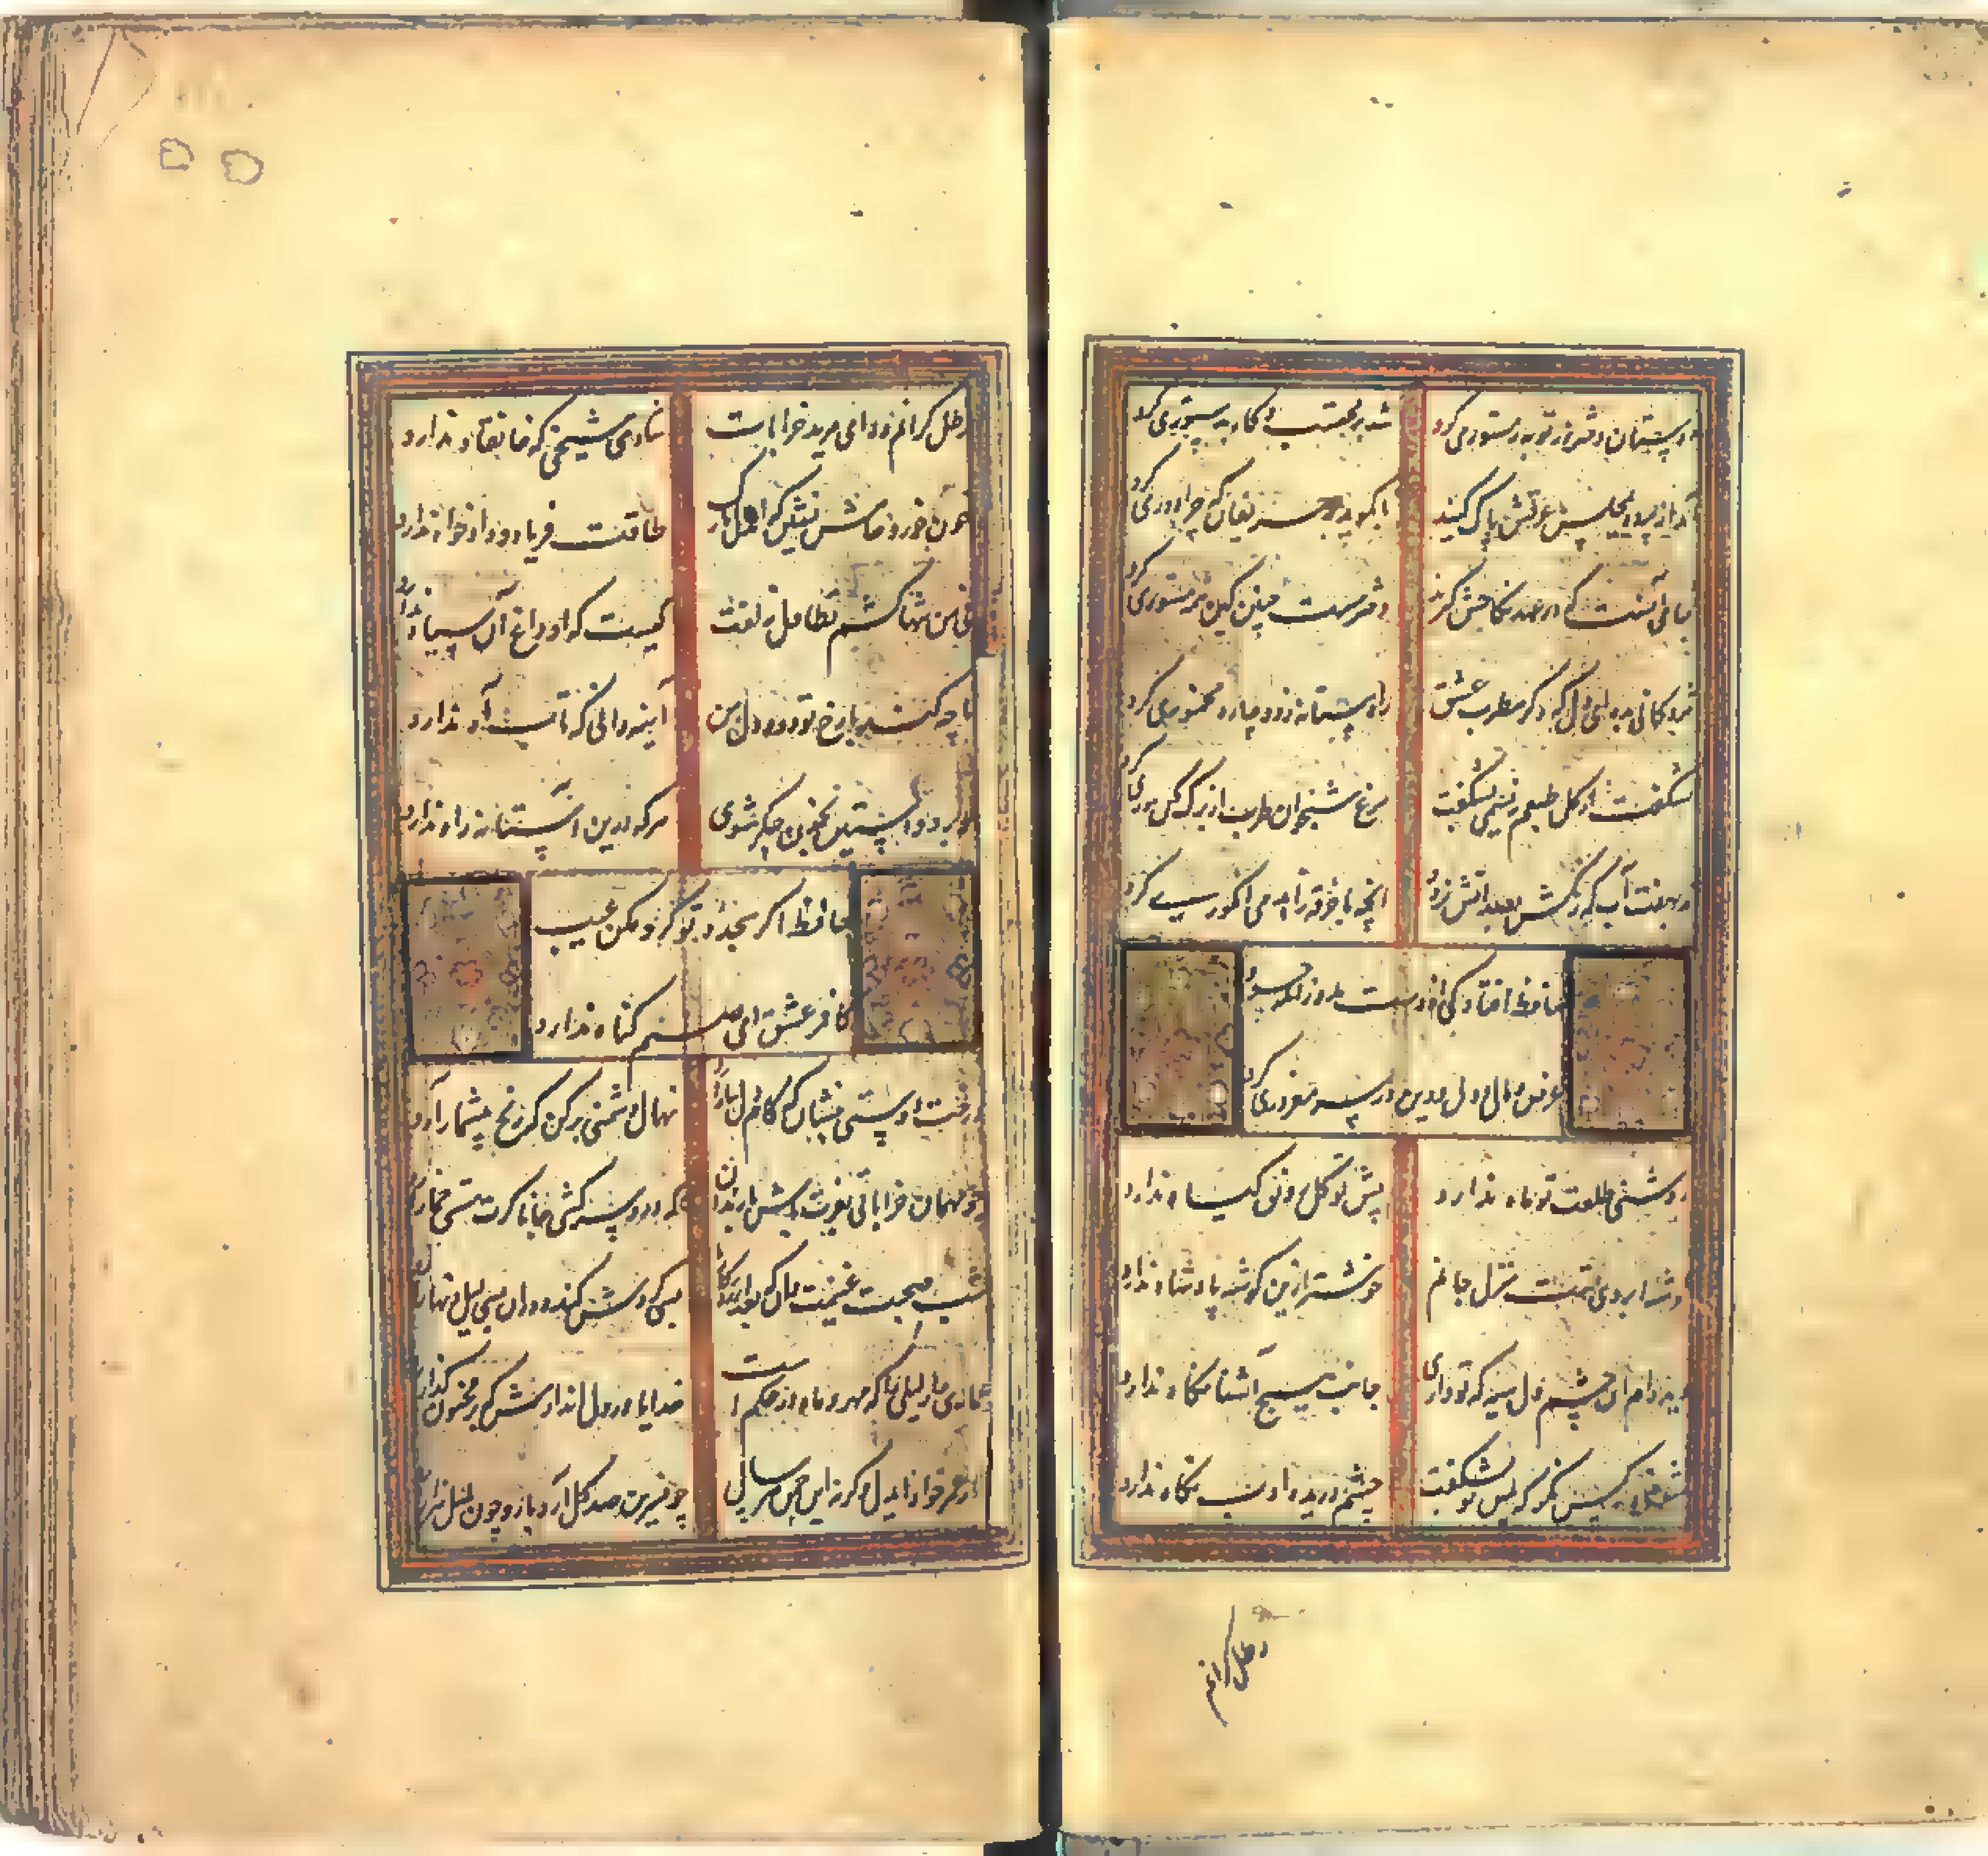 دوستان دختر رز توبه ز مستوری کرد
شد بر محتسب و کار بدستوری کرد
آمد از پرده بمجلس عرقش پاک کنید
تا بگوید بحریفان که چرا دوری کرد
جای آنست که در عقد نکاحش گیرند
دختر مست چنین کین همه مستوری کرد
مژدگانی بده ای دل که دگر مطرب عشق
راه مستانه زد و چاره مخموری کرد
نشکفت از گل طبعم ز نسیمی بشکفت
مرغ شبخوان طرب از برگ گل سوری کرد
نه بهفت آب که رنگش بصد آتش نرود
آنچه با خرقه زاهد می انگوری کرد
حافظ افتادگی از دست مده زانکه حسود
عرض و مال و دل و دین در سر مغروری کرد
روشنی طلعت تو ماه ندارد
پیش تو گل رونق گیاه ندارد
گوشه ابروی تست منزل جانم
خوشتر ازین گوشه پادشاه ندارد
دیده‌ام آن چشم دل سیه که تو داری
جانب هیچ آشنا نگاه ندارد
شوخی نرگس نگر که پیش تو بشکفت
چشم دریده ادب نگاه ندارد
رطل گرانم
رطل گرانم ده ای مرید خرابات
شادی شیخی که خانقاه ندارد
خون خور و خامش نشین که آن دل نازک
طاقت فریاد دادخواه ندارد
نی من تنها کشم تطاول زلفت
کیست که او داغ آن سیاه ندارد
تا چه کند با رخ تو دود دل من
آینه دانی که تاب آه ندارد
گو برو و آستین بخون جگر شوی
هر که درین آستانه راه ندارد
حافظ اگر سجده تو کرد مکن عیب
کافر عشق ای صنم گناه ندارد
درخت دوستی بنشان که کام دل ببار آرد
نهال دشمنی برکن که رنج بیشمار آرد
چو مهمان خراباتی بعزت باش با رندان
که درد سر کشی جانا گرت مستی خمار آرد
شب صحبت غنیمت دان که بعد از روزگار ما
بسی گردش کند دوران بسی لیل و نهار آرد
عماری دار لیلی را که مهد و ماه در حکم است
خدایا در دل اندازش که بر مجنون گذار آرد
بهار عمر خواه ای دل و گرنه این چمن هر سالی
چو نسرین صد گل آرد بار و چون بلبل هزار آرد